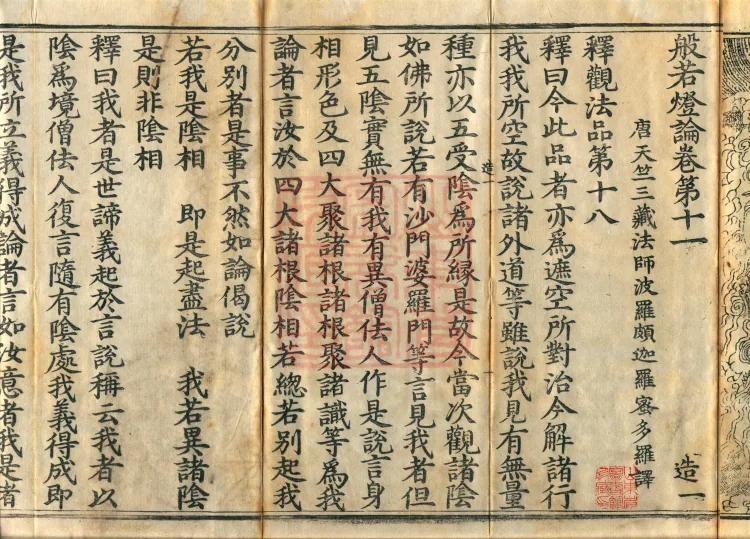 般若燈論卷第十一 造一
唐天竺三藏法師波羅頗迦羅蜜多羅譯
釋觀法品第十八
釋曰今此品者亦爲遮空所對治令解諸行
我我所空故說諸外道等雖說我見有無量
種亦以五受陰爲所緣是故今當次觀諸陰
造
如佛所說若有沙門婆羅門等言見我者但
見五陰實無有我有異僧佉人作是說言身
相形色及四大聚諸根諸根聚諸識等爲我
論者言汝於四大諸根陰相若總若別起我
分別者是事不然如論偈說
若我是陰相 即是起盡法 我若異諸陰
是則非陰相
釋曰我者是世諦義起於言說稱云我者以
陰爲境僧佉人復言隨有陰處我義得成即
是我所立義得成論者言如汝意者我是者